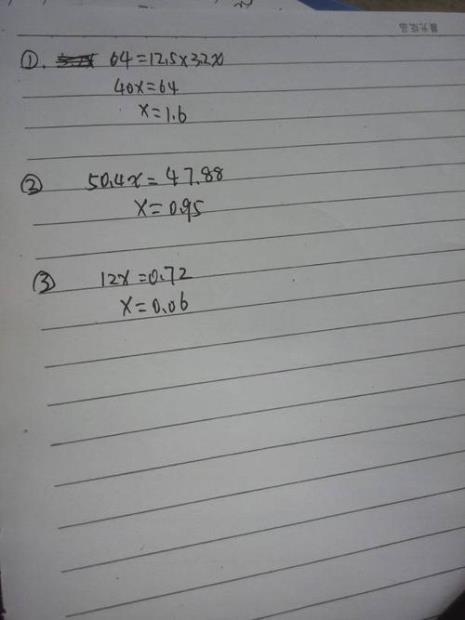 ①. 64=12.5×3.2x
40x=64
x=1.6
② 50.4x=47.88
x=0.95
③ 12x=0.72
x=0.06